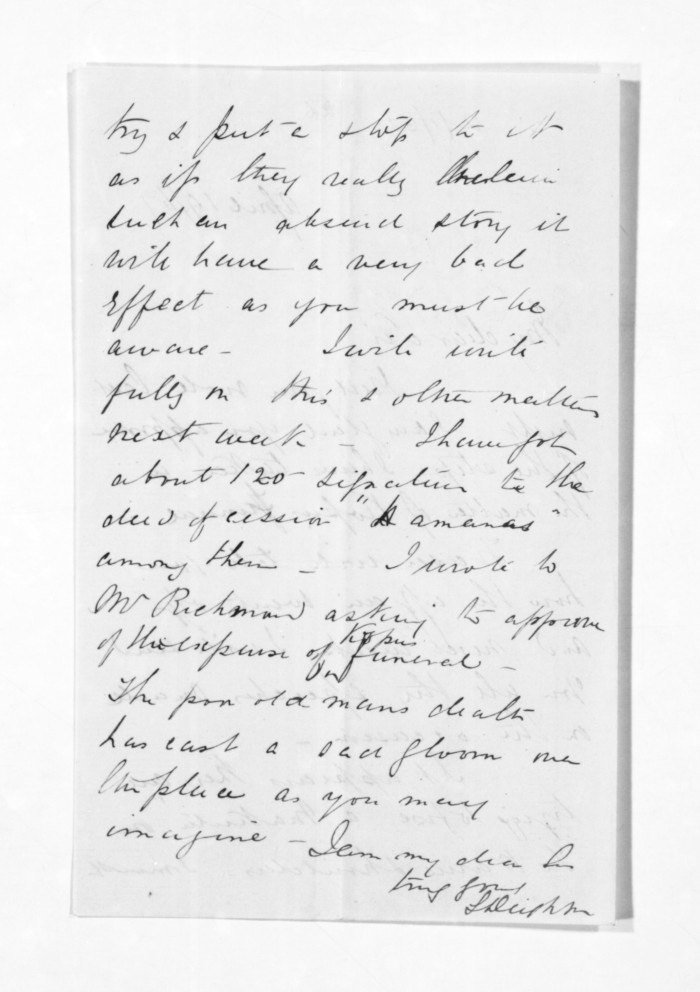 try & put a stop to it
as if they really believe
such an absurd story it
will have a very bad
effect as you must be
aware – I will write
fully on this & other matters
next week – I have got
about 120 signatures to the
deed of cession "Hamanas"
among them – I wrote to
Mr Richmond asking to approve
of the expense of Kopus funeral –
The poor old mans death
has cast a sad gloom over
this place as you may
imagine – I am my dear Sir
truly yours
S Deighton